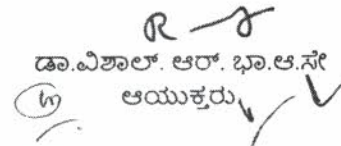 ಡಾ.ವಿಶಾಲ್. ಆರ್. ಭಾ.ಆ.ಸೇ
ಆಯುಕ್ತರು